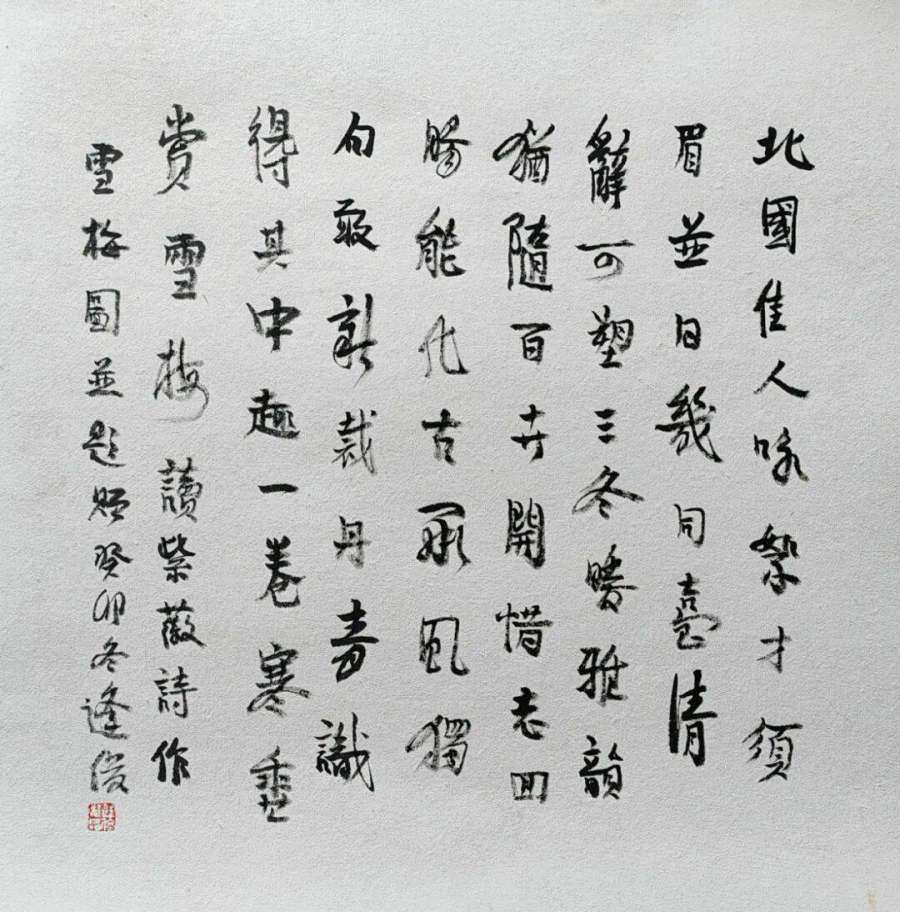 北國佳人咏絮才須
眉並日幾同臺清
辭可塑三冬暖雅韻
猶隨百卉開惜志回
腸能化古風獨
句敢新裁丹青識
得其中趣一卷寒
賞雪梅 讀紫薇詩作
雪梅圖並題贈癸卯冬逢俊